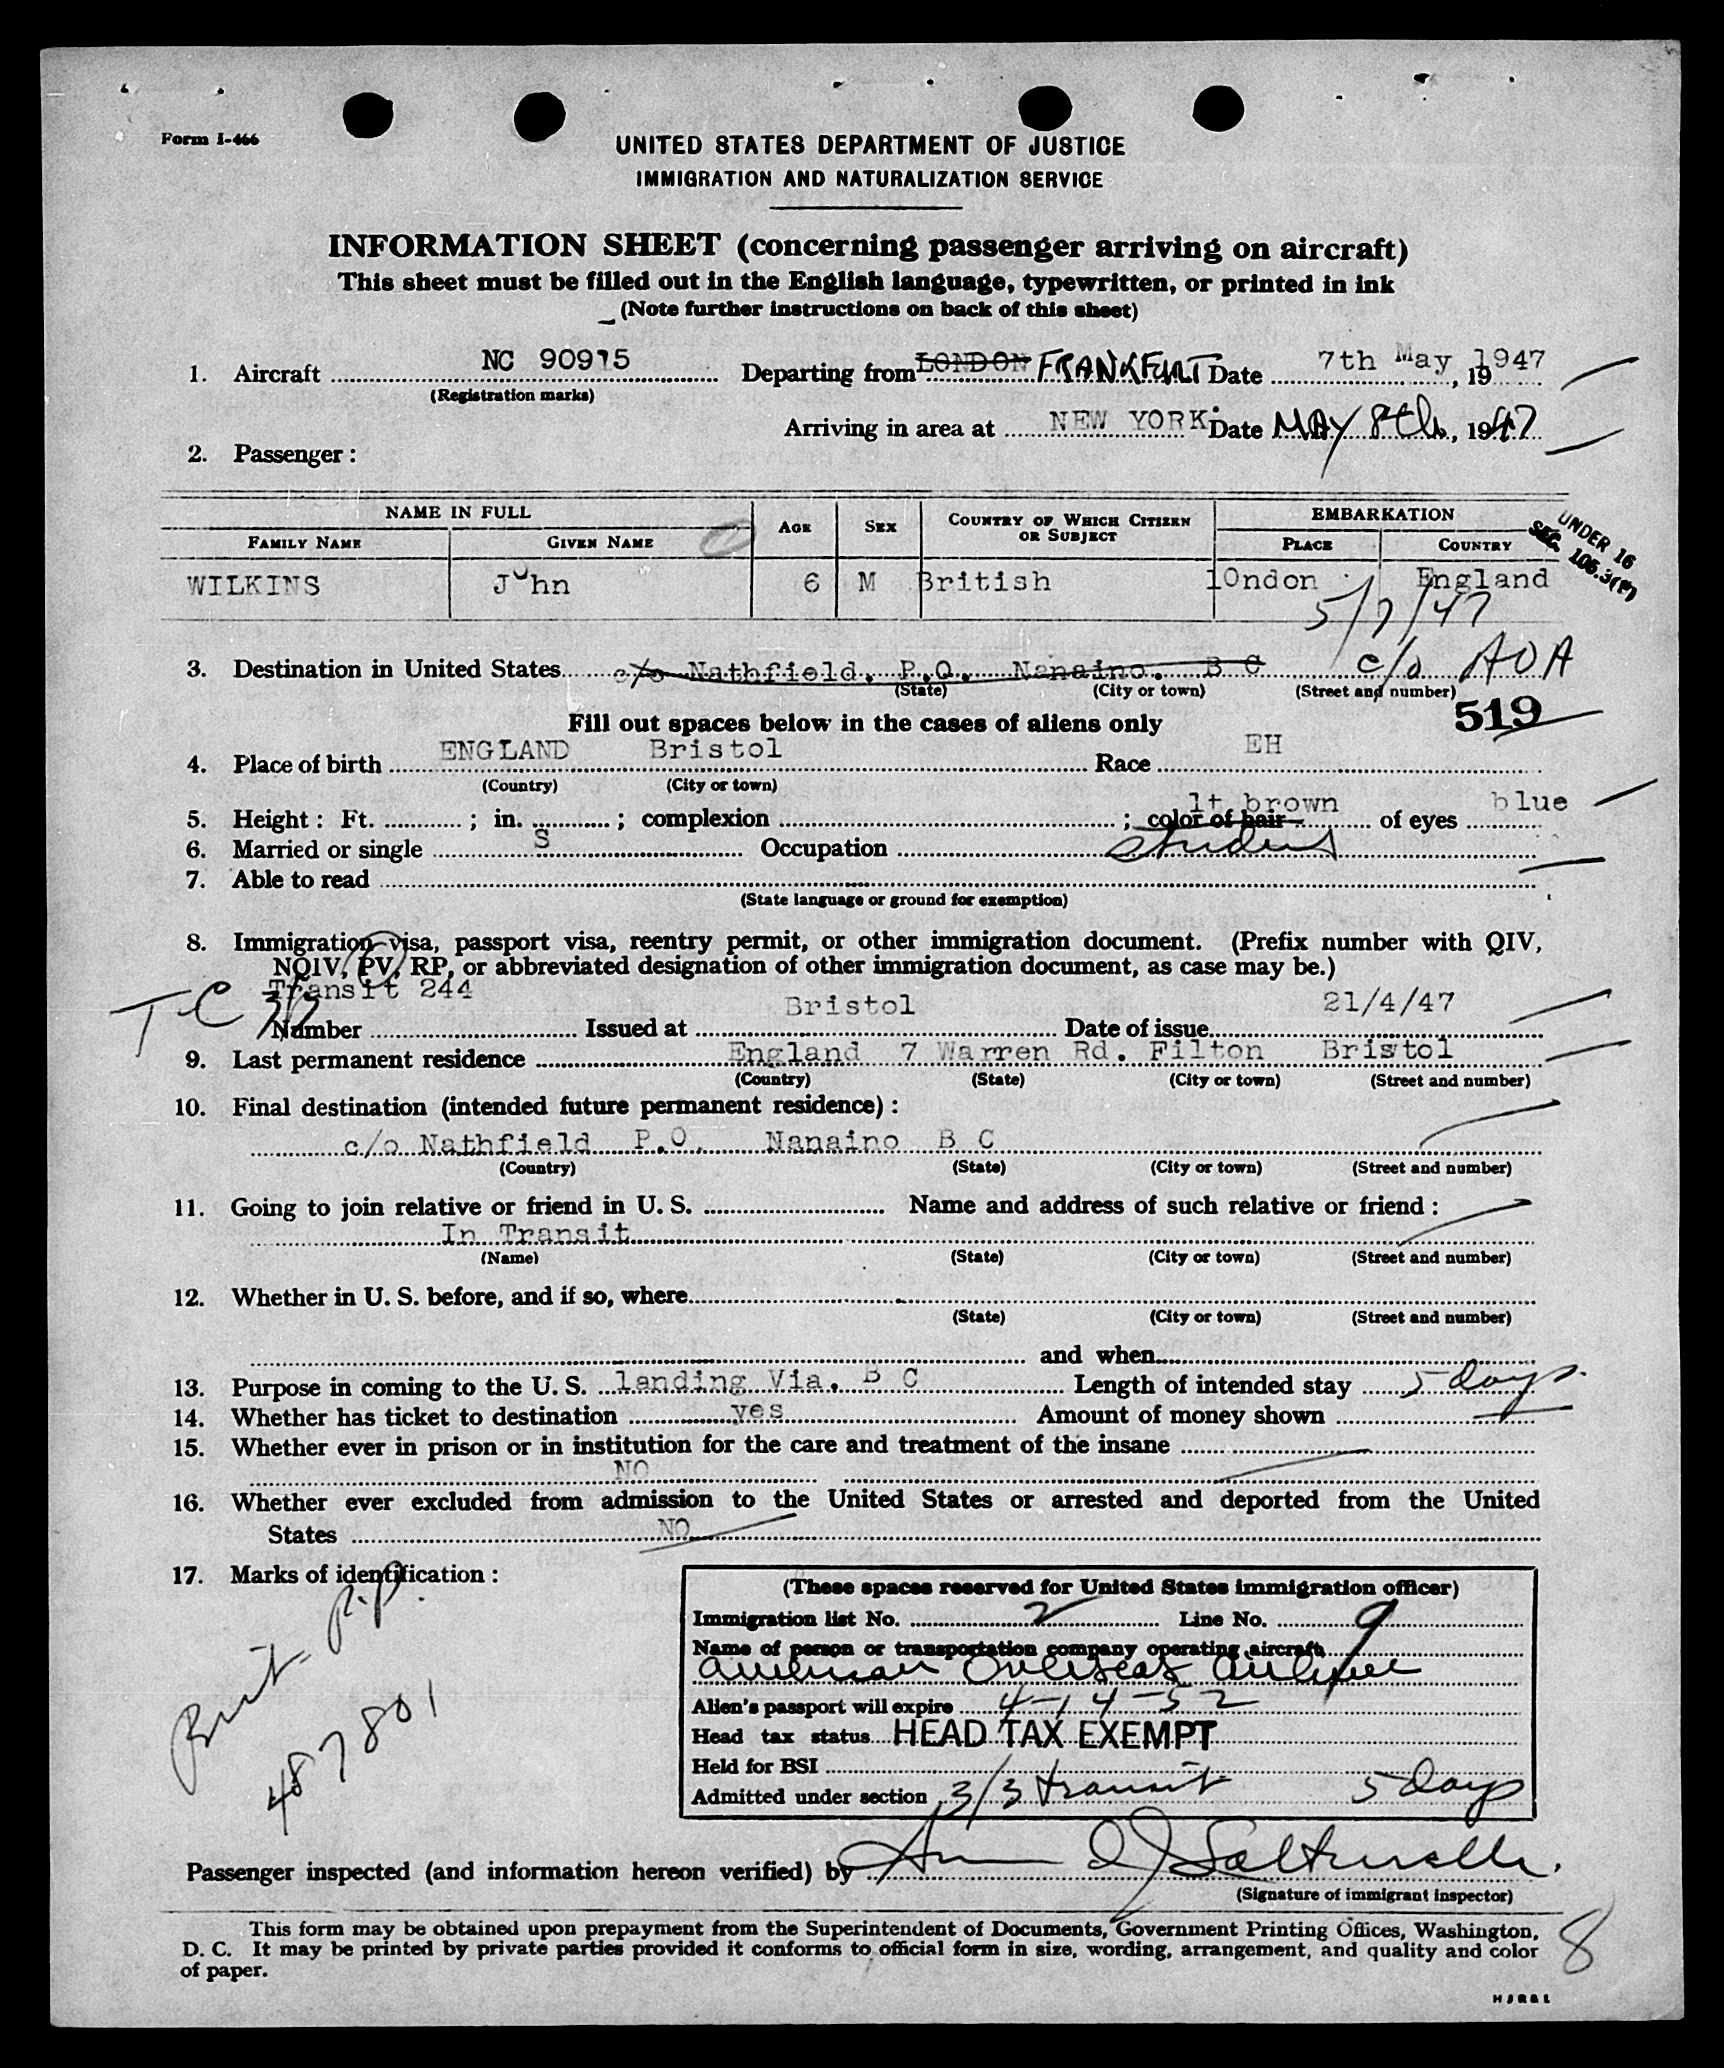 Form I-466
UNITED STATES DEPARTMENT OF JUSTICE
IMMIGRATION AND NATURALIZATION SERVICE
INFORMATION SHEET (concerning passenger arriving on aircraft)
This sheet must be filled out in the English language, typewritten, or printed in ink
(Note further instructions on back of this sheet)
1. Aircraft NC 90915 Departing from LONDON FRANKFURT Date 7th May 1947, 19
(Registration marks)
Arriving in area at NEW YORK. Date MAY 8th, 1947
2. Passenger:
NAME IN FULL AGE SEX COUNTRY OF WHICH CITIZEN OR SUBJECT EMBARKATION
FAMILY NAME GIVEN NAME PLACE COUNTRY
UNDER 16
SEC. 106.3(f)
WILKINS John 6 M British lOndon England
5/7/47
3. Destination in United States c/o Nathfield. P.O. Nanaino. B C c/o AOA
(State) (City or town) (Street and number)
519
Fill out spaces below in the cases of aliens only
4. Place of birth ENGLAND Bristol Race EH
(Country) (City or town)
5. Height: Ft. ; in. ; complexion ; color of hair lt brown of eyes blue
6. Married or single S Occupation student
7. Able to read
(State language or ground for exemption)
8. Immigration visa, passport visa, reentry permit, or other immigration document. (Prefix number with QIV,
NQIV, PV, RP, or abbreviated designation of other immigration document, as case may be.)
Transit 244
TC 3/3
Number Issued at Bristol Date of issue 21/4/47
9. Last permanent residence England 7 Warren Rd. Filton Bristol
(Country) (State) (City or town) (Street and number)
10. Final destination (intended future permanent residence):
c/o Nathfield P.O. Nanaino B C
(Country) (State) (City or town) (Street and number)
11. Going to join relative or friend in U. S. Name and address of such relative or friend:
In Transit
(Name) (State) (City or town) (Street and number)
12. Whether in U. S. before, and if so, where
(State) (City or town) (Street and number)
and when
13. Purpose in coming to the U. S. landing Via. B C Length of intended stay 5 days.
14. Whether has ticket to destination yes Amount of money shown
15. Whether ever in prison or in institution for the care and treatment of the insane
NO
16. Whether ever excluded from admission to the United States or arrested and deported from the United
States NO
17. Marks of identification:
Brit P.P.
487801
(These spaces reserved for United States immigration officer)
Immigration list No. 2 Line No. 9
Name of person or transportation company operating aircraft
American Overseas Airlines
Alien's passport will expire 4-14-52
Head tax status HEAD TAX EXEMPT
Held for BSI
Admitted under section 3/3 transit 5 days
Passenger inspected (and information hereon verified) by
(Signature of immigrant inspector)
This form may be obtained upon prepayment from the Superintendent of Documents, Government Printing Offices, Washington,
D. C. It may be printed by private parties provided it conforms to official form in size, wording, arrangement, and quality and color
of paper.
8
H J R & L